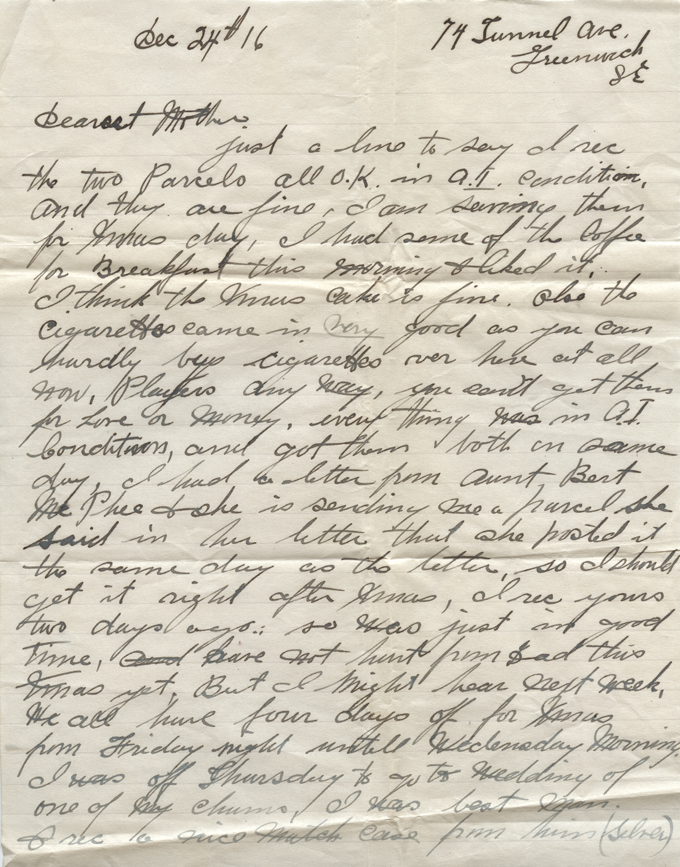 Dec 24th 16
74 Tunnel Ave.
Greenwich
SE
Dearest Mother
just a line to say I rec
the two Parcels all O.K. in A.I. Condition,
and they are fine, I am saving them
for Xmas day, I had some of the Coffee
for Breakfast this morning & liked it.
I think the Xmas cake is fine. also the
cigarettes came in very good as you can
hardly buy cigarettes over here at all
now, Players any way, you can't get them
for Love or Money, every thing was in A.I.
Conditions, and got them both on same
day, I had a letter from Aunt Bert
McPhee & she is sending me a parcel she
said in her letter that she posted it
the same day as the letter, so I should
get it right after Xmas, I rec yours
two days ago.: so was just in good
time, have not from Dad this
Xmas yet, But I Might hear next week,
We all have four days off for Xmas
from Friday night untill Wedensday Morning,
I was off Thursday to go to Wedding of
one of my chums, I was best man.
& rec a nice Match Case from him (Silver)